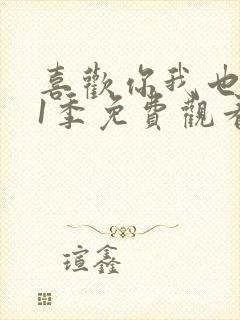 喜歡你我也
1季免費觀看
瑄鑫